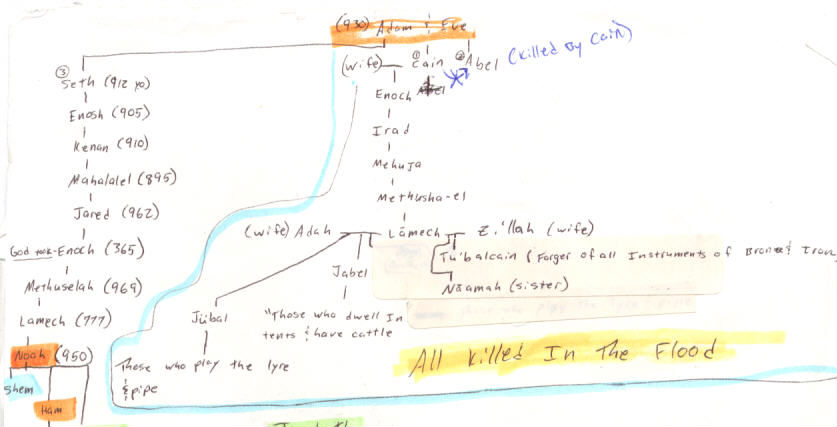 (930) Adam & Eve
(wife) ① Cain ② Abel (Killed By Cain)
③
Seth (912 yo)
Enosh (905)
Kenan (910)
Mahalalel (895)
Jared (962)
God took-Enoch (365)
Methuselah (969)
Lamech (777)
Noah (950)
Shem
Ham
Enoch
Irad
Mehuja
Methusha-el
(wife) Adah Lāmech Z.'llah (wife)
Tu'balcain (Forger of all Instruments of Bronze & Iron
Nāamah (sister)
Jabel
"Those who dwell In
tents & have cattle
Jūbal
Those who play the lyre
& pipe
All Killed In The Flood